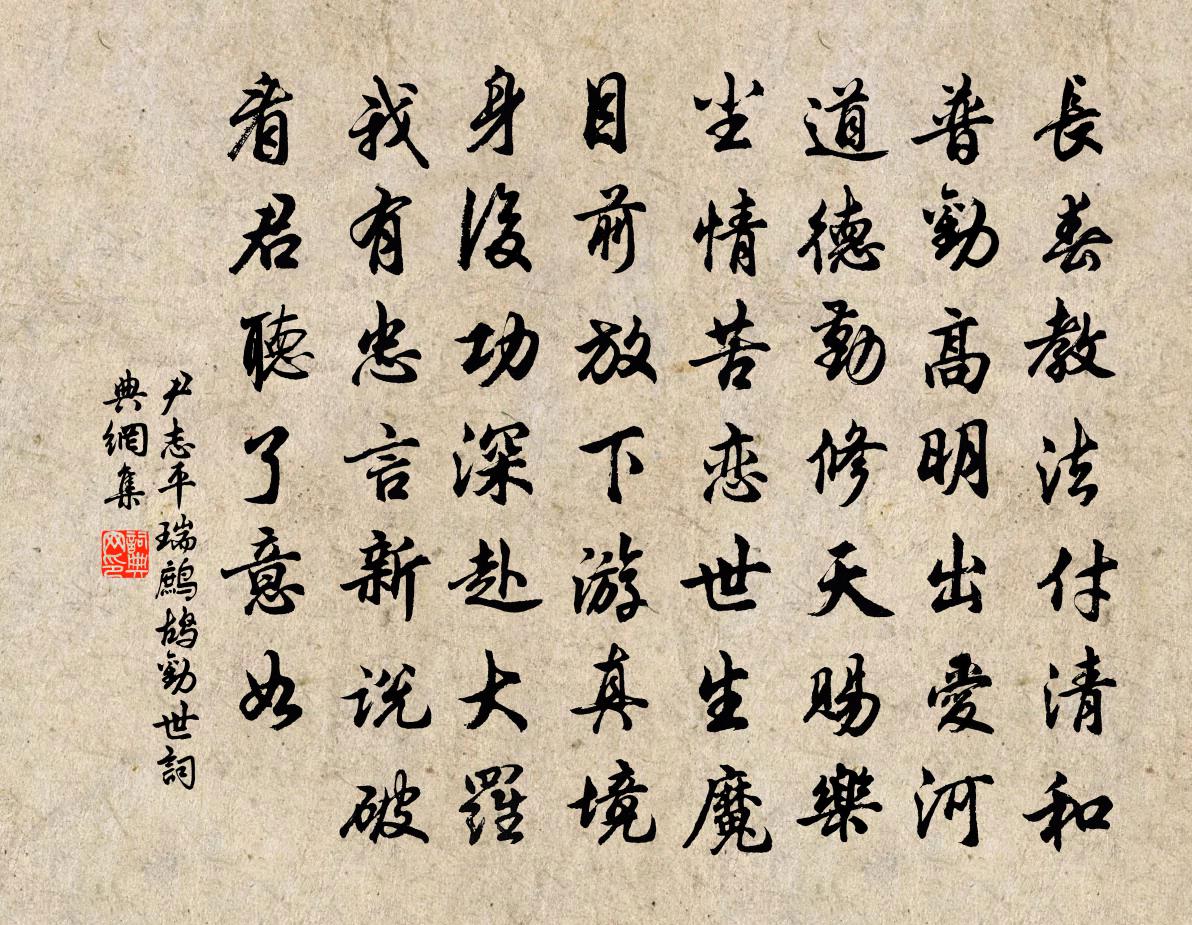 長春教法付清和
普勸高明出愛河
道德勤修天賜樂
尘情苦恋世生魔
目前放下游真境
身後功深赴大羅
我有忠言新説破
看君聽了意如
尹志平瑞鷓鴣勸世詞
典網集
詞典
网印